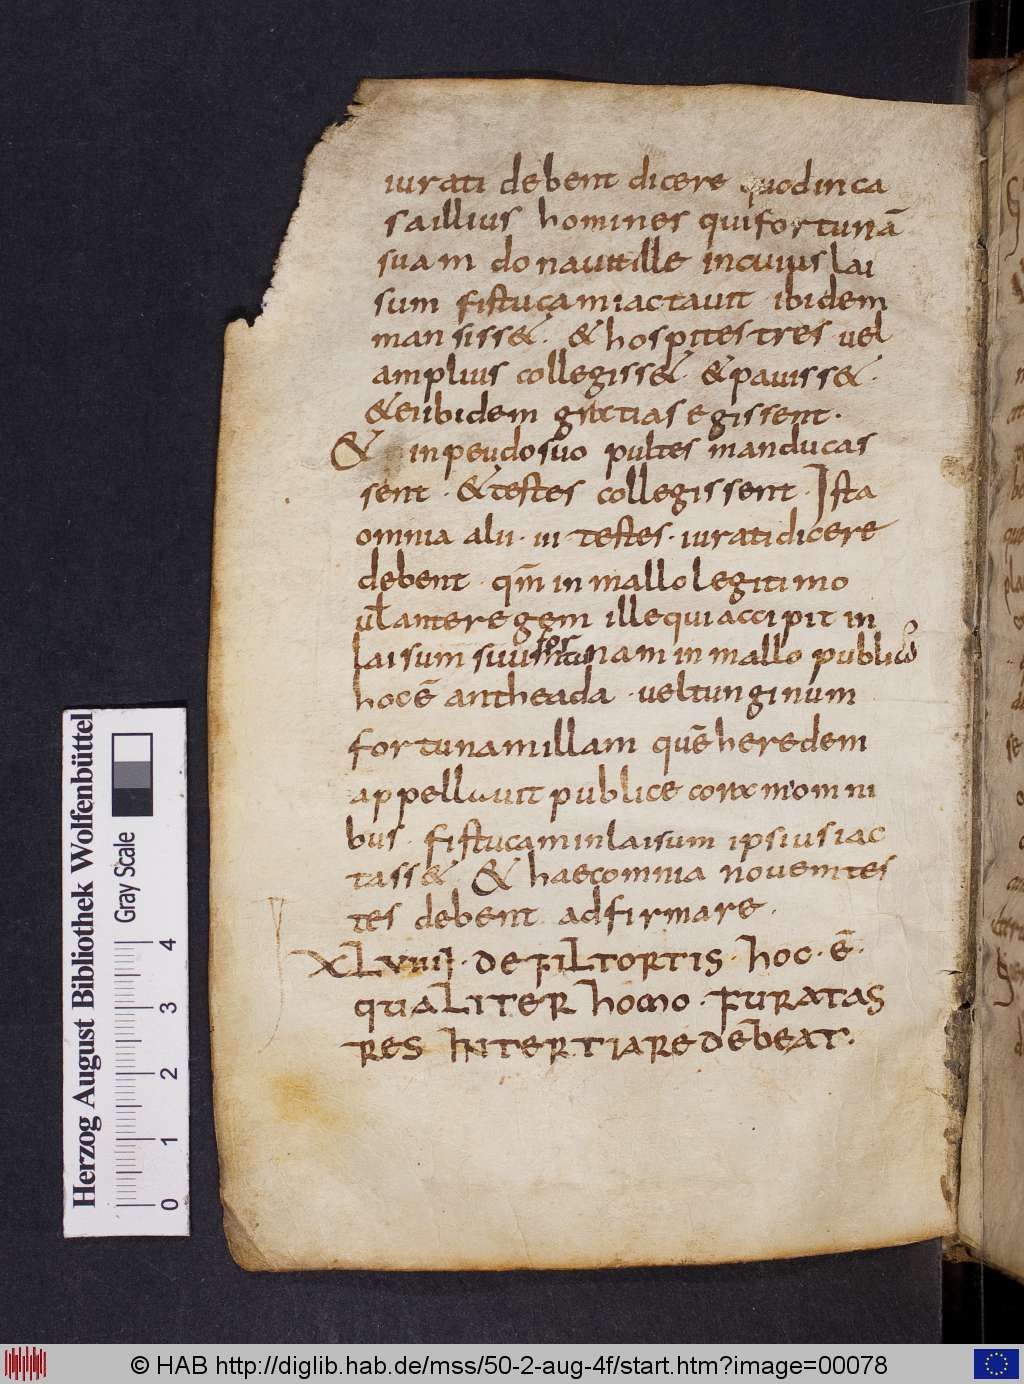 iurati debent dicere quod in ca
sa illius homines qui fortunā
suam donauit ille in cuius lai
sum fistucam iactauit ibidem
mansiss&. & hospites tres vel
amplius collegiss& & pauiss&.
& ei ibidem gratias egissent.
& in peudo suo pultes manducas
sent. & testes collegissent. Ista
omnia alii. iii testes. iurati dicere
debent. qm̄ in mallo legitimo
ul̄ ante regem ille qui accipit in
laisum suum fortunam in mallo publico
hoc ē antheada. vel tunginum
fortunam illam quē heredem
appellauit publice coram omni
bus. fistucam in laisum ipsius iac
tass& & haec omnia novem tes
tes debent adfirmare.
XLVIIII. DE FILTORTIS. hOC. Ē.
QUALITER hOMO. FURATAS
RES INTERTIARE DEBEAT.
Herzog August Bibliothek Wolfenbüttel
Gray Scale
0 1 2 3 4
© HAB http://diglib.hab.de/mss/50-2-aug-4f/start.htm?image=00078